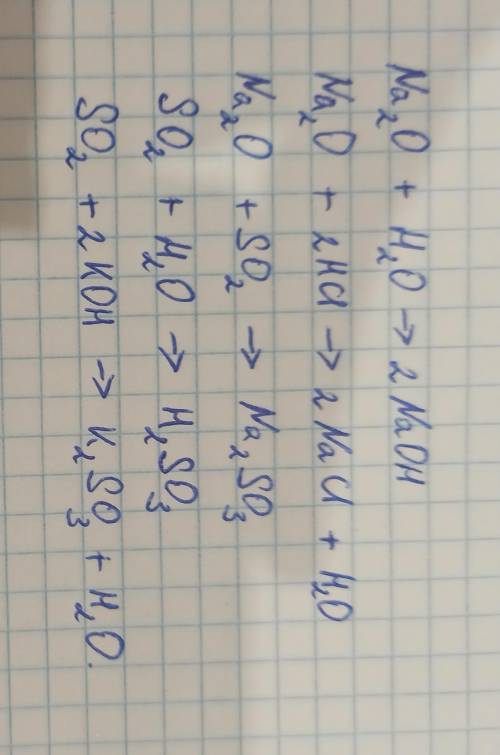 Na₂O + H₂O → 2 NaOH
Na₂O + 2HCl → 2 NaCl + H₂O
Na₂O + SO₂ → Na₂SO₃
SO₂ + H₂O → H₂SO₃
SO₂ + 2KOH → K₂SO₃ + H₂O.